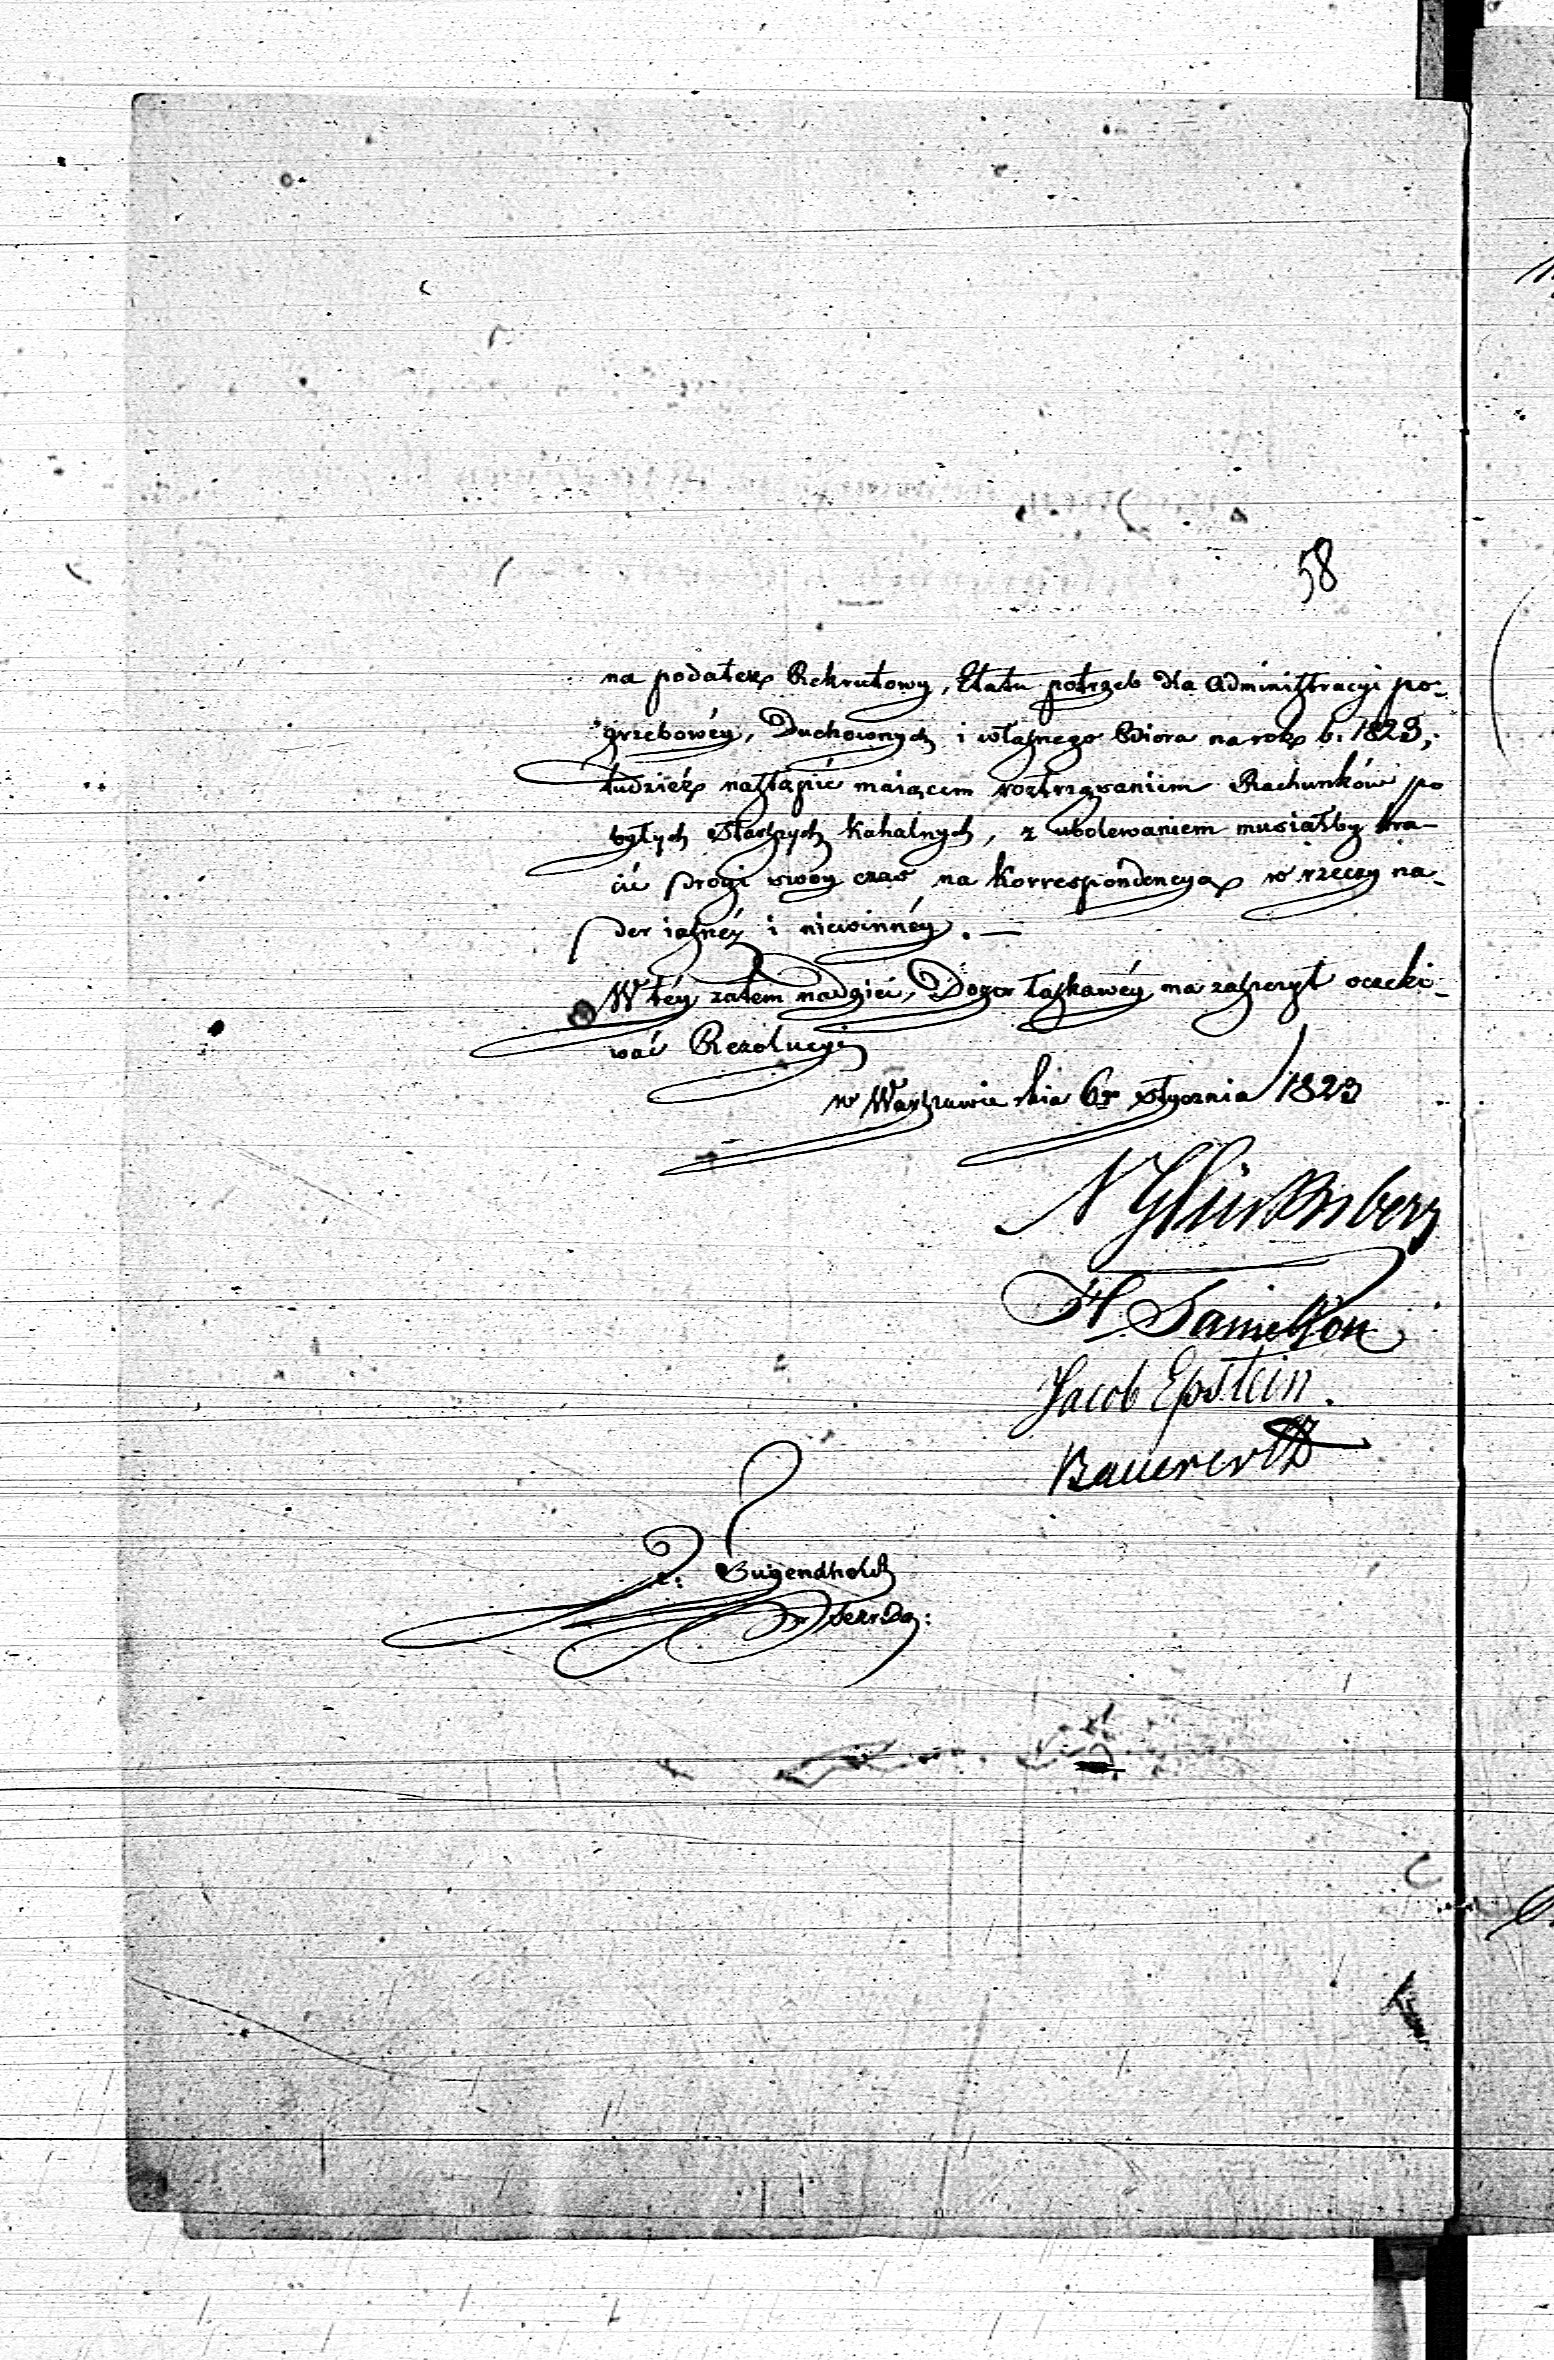 58
na podatek Rekrutowy, Etatu potrzeb dla Administracyi po-
grzebowéy, Duchownych i własnego Biora na rok b. 1823,
tudzież nastąpić maiącem roztrząsaniem Rachunków po
byłych Starszych Kahalnych, z ubolewaniem musiałby tra-
cić drogi swóy czas na Korrespondencyą w rzeczy na-
der iasnéy i niewinnéy. —
W téy zatem nadziei, Dozor łaskawéy ma zaszczyt oczeki-
wać Rezolucyi
w Warszawie dnia 6go stycznia 1823
N Glücksberg
H. Samelson
Jacob Epstein.
Bauerertz
J. Tugendhold